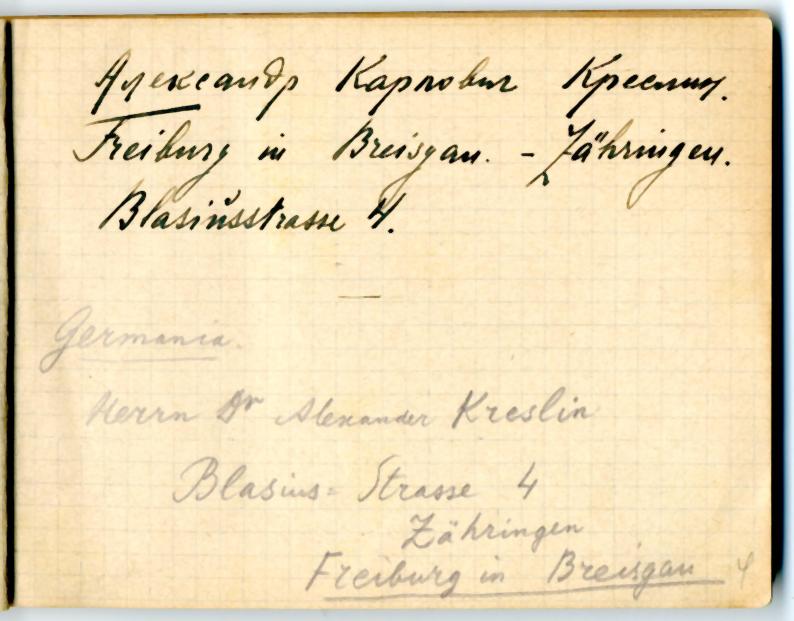 Александр Карлович Креслин.
Freiburg in Breisgau. - Zähringen.
Blasiusstrasse 4.
Germania.
Herrn Dr Alexander Kreslin
Blasius= Strasse 4
Zähringen
Freiburg in Breisgau